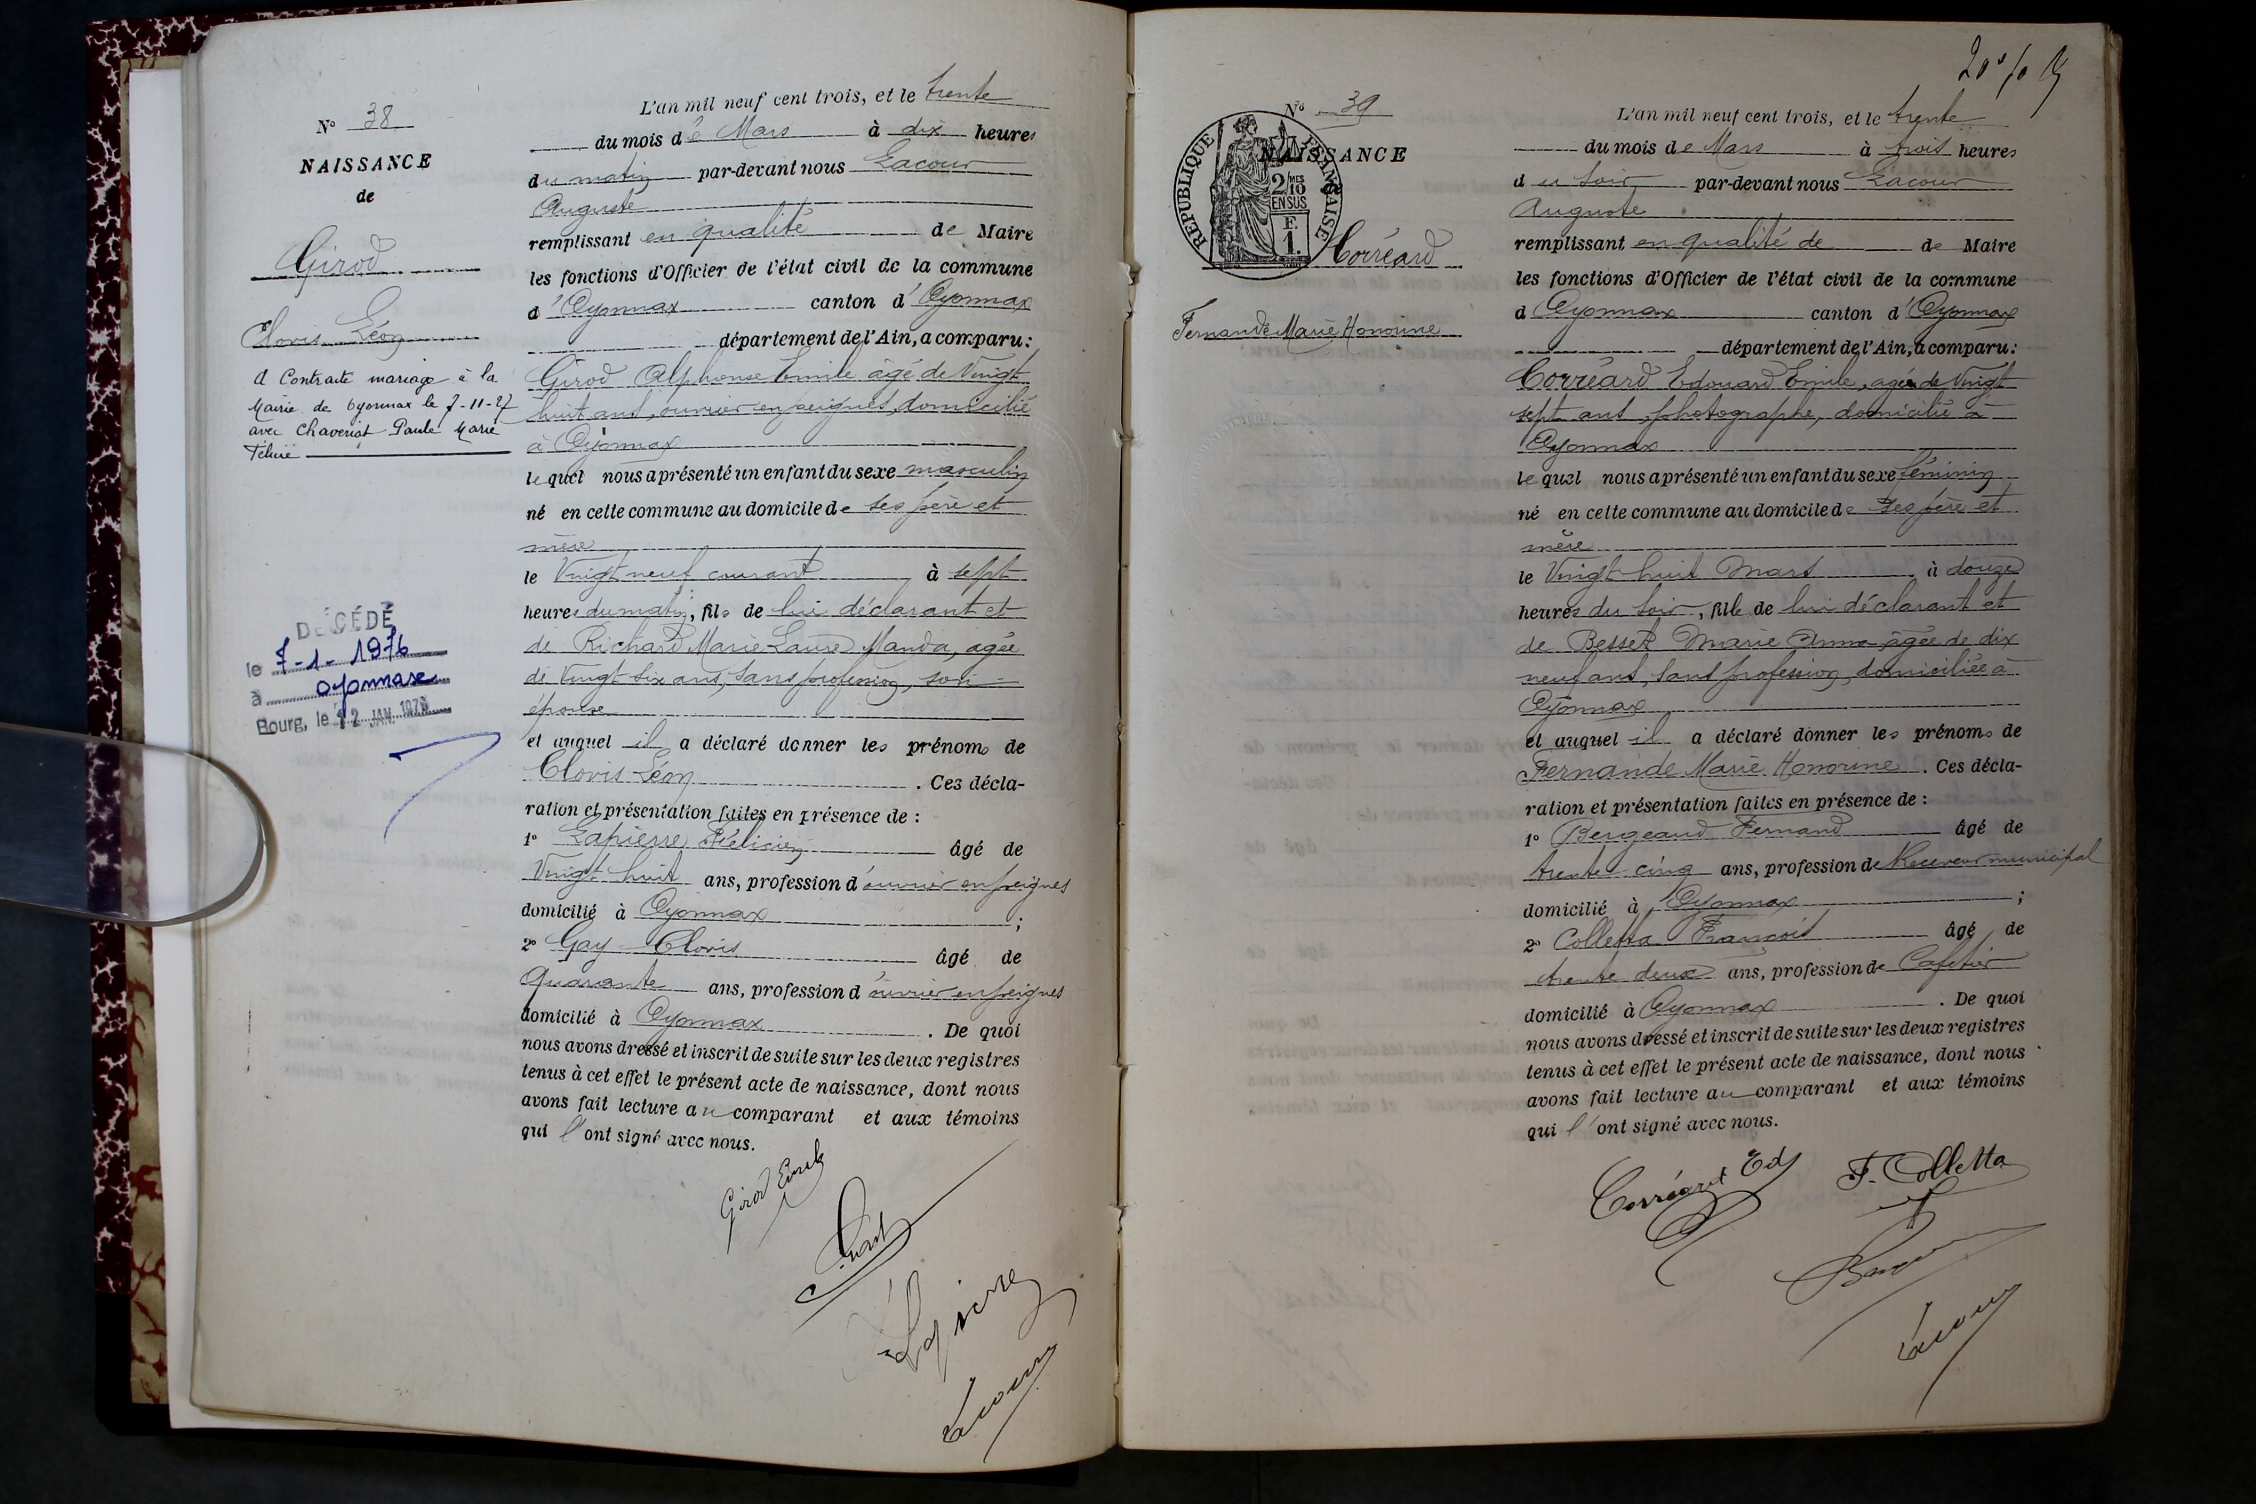 N° 38
NAISSANCE
de
Girod
Clovis Léon
A Contracté mariage à la
Mairie de Oyonnax le 7-11-27
avec Chaveriat Paule Marie
Félicie
DÉCÉDÉ
le 7-1-1976
à oyonnax
Bourg, le 12 JAN. 1976
L'an mil neuf cent trois, et le trente
du mois de Mars à dix heures
du matin par-devant nous Lacour
Auguste
remplissant en qualité de Maire
les fonctions d'Officier de l'état civil de la commune
d'Oyonnax canton d'Oyonnax
département de l'Ain, a comparu :
Girod Alphonse Emile âgé de Vingt
huit ans, ouvrier en peignes, domicilié
à Oyonnax
lequel nous a présenté un enfant du sexe masculin
né en cette commune au domicile de ses père et
mère
le Vingt neuf courant à sept
heures du matin, fils de lui déclarant et
de Richard Marie Laure Manda, agée
de Vingt six ans, sans profession, son
épouse
et auquel il a déclaré donner les prénoms de
Clovis Léon. Ces décla-
ration et présentation faites en présence de :
1° Lapierre Félicien âgé de
Vingt huit ans, profession d'ouvrier en peignes
domicilié à Oyonnax ;
2° Gay Clovis âgé de
Quarante ans, profession d'ouvrier en peignes
domicilié à Oyonnax. De quoi
nous avons dressé et inscrit de suite sur les deux registres
tenus à cet effet le présent acte de naissance, dont nous
avons fait lecture au comparant et aux témoins
qui l'ont signé avec nous.
Girod Emile
Lapierre
Lacour
N° 39
NAISSANCE
RÉPUBLIQUE FRANÇAISE
2/10MES
EN SUS
F.
1.
Corréard
Fernande Marie Honorine
L'an mil neuf cent trois, et le trente
du mois de Mars à trois heures
du soir par-devant nous Lacour
Auguste
remplissant en qualité de de Maire
les fonctions d'Officier de l'état civil de la commune
d Oyonnax canton d'Oyonnax
département de l'Ain, a comparu :
Corréard Edouard Emile, agé de Vingt
sept ans, photographe, domicilié à
Oyonnax
lequel nous a présenté un enfant du sexe féminin
né en cette commune au domicile de ses père et
mère
le Vingt huit Mars à douze
heures du soir, fille de lui déclarant et
de Besset Marie Anna âgée de dix
neuf ans, sans profession, domiciliée à
Oyonnax
et auquel il a déclaré donner les prénoms de
Fernande Marie Honorine. Ces décla-
ration et présentation faites en présence de :
1° Bergeaud Fernand âgé de
trente cinq ans, profession de Receveur municipal
domicilié à Oyonnax ;
2° Colletta François âgé de
trente deux ans, profession de Cafetier
domicilié à Oyonnax. De quoi
nous avons dressé et inscrit de suite sur les deux registres
tenus à cet effet le présent acte de naissance, dont nous
avons fait lecture au comparant et aux témoins
qui l'ont signé avec nous.
Corréard Ed
F. Colletta
Lacour